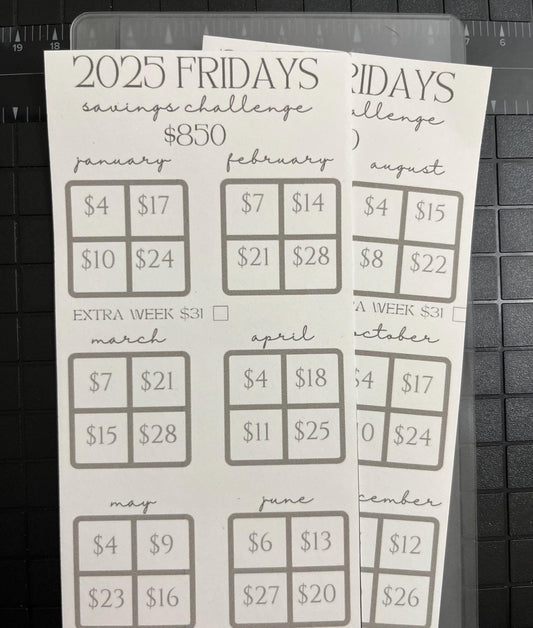 2025 FRIDAYS
savings challenge
$850
january february
$4 $17 $7 $14
$10 $24 $21 $28
EXTRA WEEK $31
march april
$7 $21 $4 $18
$15 $28 $11 $25
may june
$4 $9 $6 $13
$23 $16 $27 $20
august
$4 $15
$8 $22
WEEK $31
$4 $17
$24
$12
$26
19 18 7 6